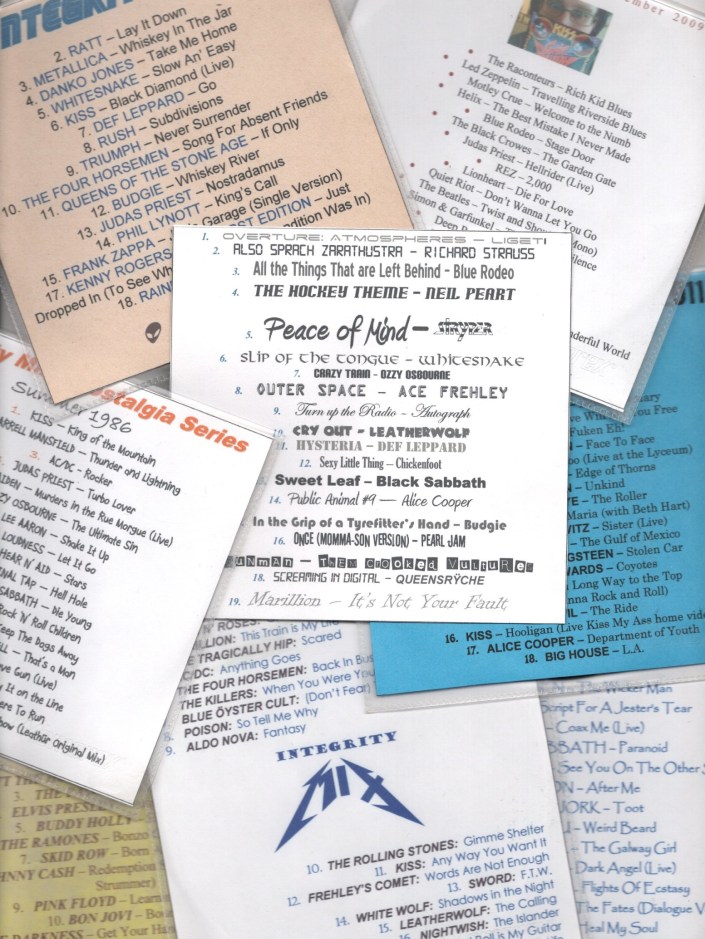 INTEGRITY
2. RATT – Lay It Down
3. METALLICA – Whiskey In The Jar
4. DANKO JONES – Take Me Home
5. WHITESNAKE – Slow An' Easy
6. KISS – Black Diamond (Live)
7. DEF LEPPARD – Go
8. RUSH – Subdivisions
9. TRIUMPH – Never Surrender
10. THE FOUR HORSEMEN – Song For Absent Friends
11. QUEENS OF THE STONE AGE – If Only
12. BUDGIE – Whiskey River
13. JUDAS PRIEST – Nostradamus
14. PHIL LYNOTT – King's Call
15. FRANK ZAPPA – Garage (Single Version)
17. KENNY ROGERS EDITION – Just
Dropped In (To See Condition Was In)
18.
2009
The Raconteurs – Rich Kid Blues
Led Zeppelin – Travelling Riverside Blues
Motley Crue – Welcome to the Numb
Helix – The Best Mistake I Never Made
Blue Rodeo – Stage Door
The Black Crowes – The Garden Gate
Judas Priest – Hellrider (Live)
REZ – 2,000
Lionheart – Die For Love
Quiet Riot – Don't Wanna Let You Go
The Beatles – Twist and
Simon & Garfunkel –
World
1. OVERTURE: ATMOSPHERES – LIGETI
2. ALSO SPRACH ZARATHUSTRA – RICHARD STRAUSS
3. All the Things That are Left Behind – Blue Rodeo
4. THE HOCKEY THEME – NEIL PEART
5. Peace of Mind – STRYPER
6. SLIP OF THE TONGUE – WHITESNAKE
7. CRAZY TRAIN – OZZY OSBOURNE
8. OUTER SPACE – ACE FREHLEY
9. Turn up the Radio – Autograph
10. CRY OUT – LEATHERWOLF
11. HYSTERIA – DEF LEPPARD
12. Sexy Little Thing – Chickenfoot
Sweet Leaf – Black Sabbath
14. Public Animal #9 — Alice Cooper
In the Grip of a Tyrefitter's Hand – Budgie
16. ONCE (MOMMA-SON VERSION) – PEARL JAM
GUNMAN – THEM CROOKED VULTURES
18. SCREAMING IN DIGITAL – QUEENSRŸCHE
19. Marillion – It's Not Your Fault
Nostalgia Series
Summer 1986
1. KISS – King of the Mountain
DARRELL MANSFIELD – Thunder and Lightning
3. AC/DC – Rocker
JUDAS PRIEST – Turbo Lover
MAIDEN – Murders in the Rue Morgue (Live)
OZZY OSBOURNE – The Ultimate Sin
LEE AARON – Shake It Up
LOUDNESS – Let It Go
HEAR N' AID – Stars
SPINAL TAP – Hell Hole
SABBATH – Die Young
Rock 'N' Roll Children
Keep The Dogs Away
That's a Man
Love Gun (Live)
It on the Line
Here To Run
(Original Mix)
You Free
Fuken Eh!
– Face To Face
(Live at the Lyceum)
– Edge of Thorns
– Unkind
– The Roller
Maria (with Beth Hart)
– Sister (Live)
– The Gulf of Mexico
– Stolen Car
– Coyotes
Long Way to the Top
Wanna Rock and Roll)
– The Ride
16. KISS – Hooligan (Live Kiss My Ass home video)
17. ALICE COOPER – Department of Youth
18. BIG HOUSE – L.A.
N' ROSES:
This Train is My Life
TRAGICALLY HIP: Scared
AC/DC: Anything Goes
THE FOUR HORSEMEN: Back In
THE KILLERS: When You Were
BLUE ÖYSTER CULT: (Don't Fear)
8. POISON: So Tell Me Why
9. ALDO NOVA: Fantasy
INTEGRITY
MIX
10. THE ROLLING STONES: Gimme Shelter
11. KISS: Any Way You Want It
12. FREHLEY'S COMET: Words Are Not Enough
13. SWORD: F.T.W.
14. WHITE WOLF: Shadows in the Night
15. LEATHERWOLF: The Calling
16. NIGHTWISH: The Islander
Roll is My Guitar
3. THE
ELVIS
5. BUDDY HOLLY
THE RAMONES – Bonzo
7. SKID ROW – Born
JOHNNY CASH – Redemption
Strummer)
9. PINK FLOYD –
10. BON JOVI –
DARKNESS – Get Your
Wicker Man
Script For A Jester's Tear
– Coax Me (Live)
SABBATH – Paranoid
See You On The Other
– After Me
– Toot
– Weird Beard
– The Galway Girl
Dark Angel (Live)
– Flights Of Ecstasy
– The Fates (Dialogue
Heal My Soul